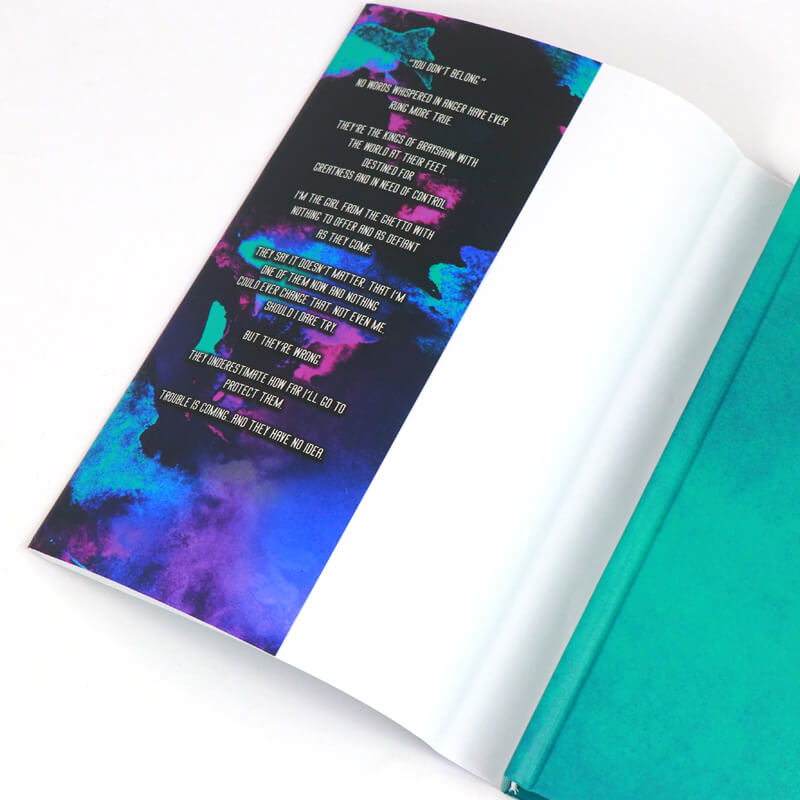 "YOU DON'T BELONG."
NO WORDS WHISPERED IN ANGER HAVE EVER
RUNG MORE TRUE.
THEY'RE THE KINGS OF BRAYSHAW WITH
THE WORLD AT THEIR FEET,
DESTINED FOR
GREATNESS AND IN NEED OF CONTROL.
I'M THE GIRL FROM THE GHETTO WITH
NOTHING TO OFFER AND AS DEFIANT
AS THEY COME.
THEY SAY IT DOESN'T MATTER, THAT I'M
ONE OF THEM NOW AND NOTHING
COULD EVER CHANGE THAT. NOT EVEN ME,
SHOULD I DARE TRY.
BUT THEY'RE WRONG.
THEY UNDERESTIMATE HOW FAR I'LL GO TO
PROTECT THEM.
TROUBLE IS COMING, AND THEY HAVE NO IDEA.